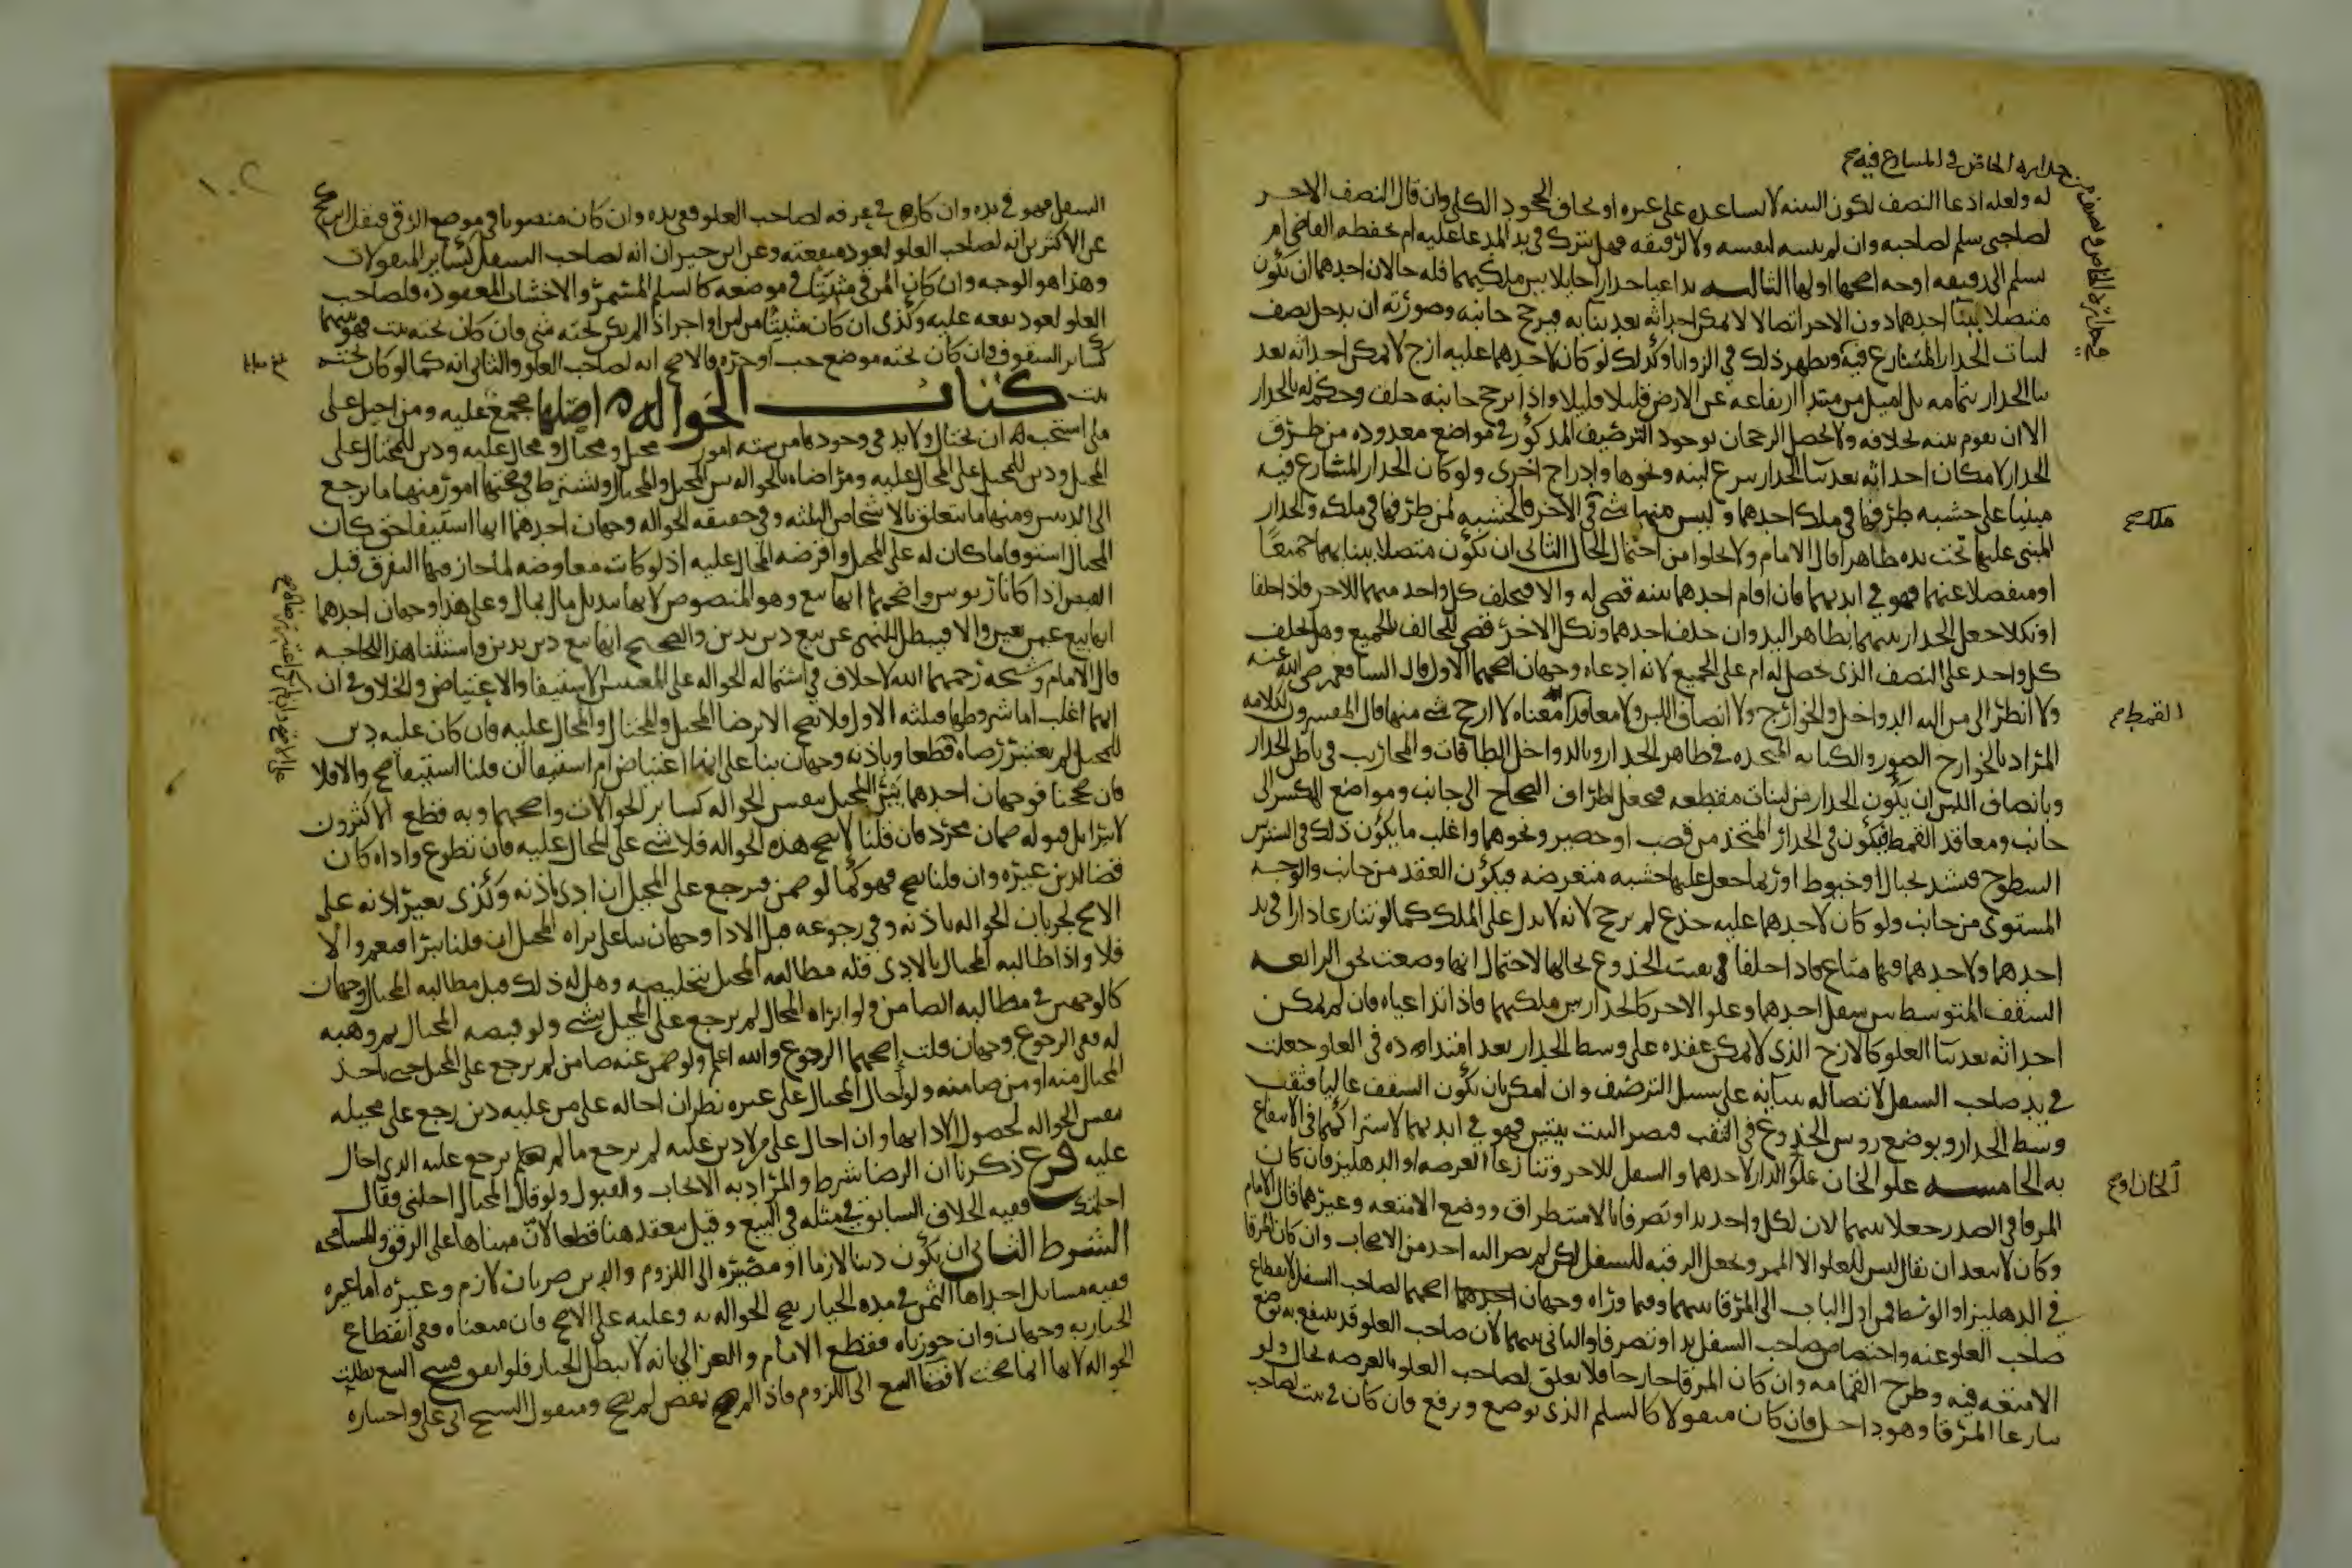 له ولعله ادعا النصف لكون البينه لا تساعده على غيره او يخاف الجحود الكلي وان قال النصف الاخر
لصاحبي سلم لصاحبه وان لم ينسبه لنفسه ولا لرفيقه فهل يترك في يد المدعا عليه ام يحفظه القاضي ام
يسلم الى رفيقه اوجه اصحها اولها الثالثه تداعيا جدارا حايلا بين ملكيهما فله حالان احدهما ان يكون
متصلا ببنا احدهما دون الاخر اتصالا لا يمكن احداثه بعد بنايه فيرجح جانبه وصورته ان يدخل نصف
لبنات الجدار المتنازع فيه ويظهر ذلك في الزوايا وكذلك لو كان لاحدهما عليه ازج لا يمكن احداثه بعد
بنا الجدار بتمامه بل اميل من مبتدا ارتفاعه عن الارض قليلا قليلا واذا ترجح جانبه حلف وحكم له بالجدار
الا ان تقوم بينه بخلافه ولا يحصل الرجحان بوجود الترصيف المذكور في مواضع معدوده من طرف
الجدار لامكان احداثه بعد بنا الجدار بنزع لبنه ونحوها وادراج اخرى ولو كان الجدار المتنازع فيه
مبنيا على خشبه طرفها في ملك احدهما وليس منها شي في الاخر فالخشبه لمن طرفها في ملكه والجدار
المبني عليها تحت يده ظاهرا قال الامام ولا يخلوا من احتمال الحال الثاني ان يكون متصلا ببنايهما جميعا
او منفصلا عنهما فهو في ايديهما فان اقام احدهما بينه قضي له والا فيحلف كل واحد منهما للاخر فاذا حلفا
او نكلا جعل الجدار بينهما بظاهر اليد وان حلف احدهما ونكل الاخر قضى للحالف بالجميع وهل يحلف
كل واحد على النصف الذي يحصل له ام على الجميع لانه ادعاه وجهان اصحهما الاول قال الشافعي رضي الله عنه
ولا انظر الى من اليه الدواخل والخوارج ولا انصاف اللبن ولا معاقد القمط معناه لا ارجح بشي منها قال المفسرون لكلامه
المراد بالخوارج الصور والكتابه المتخذه في ظاهر الجدار وبالدواخل الطاقات والمحاريب في باطن الجدار
وبانصاف اللبن ان يكون الجدار من لبنات مقطعه فيجعل اطراف الصحاح الى جانب ومواضع الكسر الى
جانب ومعاقد القمط فيكون في الجدار المتخذ من قصب او حصير ونحوهما واغلب ما يكون ذلك في الستر بين
السطوح فيشد بحبال او خيوط او ربما جعل عليها خشبه معترضه فيكون العقد من جانب والوجه
المستوي من جانب ولو كان لاحدهما عليه جذع لم يرجح لانه لا يدل على الملك كما لو تنازعا دارا في يد
احدهما ولاحدهما فيها متاع فاذا حلفا بقيت الجذوع بحالها لاحتمال انها وضعت بحق الرابعه
السقف المتوسط بين سفل احدهما وعلو الاخر كالجدار بين ملكيهما فاذا تداعياه فان لم يمكن
احداثه بعد بنا العلو كالازج الذي لا يمكن عقده على وسط الجدار بعد امتداده في العلو جعلت
في يد صاحب السفل لاتصاله ببنايه على سبيل الترصيف وان امكن بان يكون السقف عاليا فيثقب
وسط الجدار ويوضع روس الجذوع في الثقب فيصير البيت بيتين فهو في ايديهما لاشتراكهما في الانتفاع
به الخامسه علو الخان علو الدار لاحدهما والسفل للاخر وتنازعا العرصه او الدهليز فان كان
المرقا في الصدر جعلا بينهما لان لكل واحد يدا وتصرفا بالاستطراق ووضع الامتعه وغيرهما قال الامام
وكان لا يبعد ان يقال ليس للعلو الا الممر وتجعل الرقبه للسفل لكن لم يصر اليه احد من الاصحاب وان كان المرقا
في الدهليز او الوسط فمن اول الباب الى المرقا بينهما وفيما وراه وجهان اصحهما لصاحب السفل لانقطاع
صاحب العلو عنه واختصاص صاحب السفل يدا وتصرفا والثاني بينهما لان صاحب العلو قد ينتفع به بوضع
الامتعه فيه وطرح القمامه وان كان المرقا خارجا فلا تعلق لصاحب العلو بالعرصه بحال ولو
تنازعا المرقا وهو داخل فان كان منقولا كالسلم الذي يوضع ويرفع فان كان في بيت لصاحب
السفل فهو في يده وان كان في غرفه لصاحب العلو ففي يده وان كان منصوبا في موضع الرقي فنقل ابن كج
عن الاكثرين انه لصاحب العلو لعود منفعته وعن ابن خيران انه لصاحب السفل كساير المنقولات
وهذا هو الوجه وان كان المرقي مثبتا في موضعه كالسلم المسمر والاخشاب المعقوده فلصاحب
العلو لعود نفعه عليه وكذى ان كان مثبتا من لبن او اجر اذا لم يكن تحته شي وان كان تحته بيت فهو بينهما
كساير السقوف وان كان تحته موضع حب او جره فالاصح انه لصاحب العلو والثاني انه كما لو كان تحته
بيت كتاب الحواله اصلها مجمع عليه ومن احيل على
ملي استحب له ان يحتال ولا بد في وجودها من سته امور محيل ومحتال ومحال عليه ودين للمحتال على
المحيل ودين للمحيل على المحال عليه ومراضاه بالحواله بين المحيل والمحتال ويشترط في صحتها امور منها ما يرجع
الى الدينين ومنها ما يتعلق بالاشخاص الثلثه وفي حقيقه الحواله وجهان احدهما انها استيفا حق كان
المحتال استوفا ما كان له على المحيل واقرضه المحال عليه اذ لو كانت معاوضه لما جاز فيها التفرق قبل
القبض اذا كانا ربويين واصحهما انها بيع وهو المنصوص لانها تبديل مال بمال وعلى هذا وجهان احدهما
انها بيع عين بعين والا فيبطل للنهي عن بيع دين بدين والصحيح انها بيع دين بدين واستثنا هذا للحاجه
قال الامام وشيخه رحمهما الله لا خلاف في اشتمال الحواله على المعنيين الاستيفا والاعتياض والخلاف في ان
ايهما اغلب اما شروطها فثلثه الاول ولا تصح الا برضا المحيل والمحتال والمحال عليه فان كان عليه دين
للمحيل لم يعتبر رضاه قطعا وباذنه وجهان بنا على انها اعتياض ام استيفا ان قلنا استيفا صح والا فلا
فان صححنا فوجهان احدهما يبرا المحيل بنفس الحواله كساير الحوالات واصحهما وبه قطع الاكثرون
لا يبرا بل قبوله ضمان مجرد فان قلنا لا تصح هذه الحواله فلا شي على المحال عليه فان تطوع واداه كان
قضا لدين غيره وان قلنا تصح فهو كما لو ضمن فيرجع على المحيل ان ادى باذنه وكذى بغير اذنه على
الاصح لجريان الحواله باذنه وفي رجوعه قبل الادا وجهان بنا على براه المحيل ان قلنا يبرا فنعم والا
فلا واذا طالبه المحتال بالادى فله مطالبه المحيل بتخليصه وهل له ذلك قبل مطالبه المحتال وجهان
كالوجهين في مطالبه الضامن ولو ابراه المحتال لم يرجع على المحيل بشي ولو قبضه المحتال ثم وهبه
له ففي الرجوع وجهان قلت اصحهما الرجوع والله اعلم ولو ضمن عنه ضامن لم يرجع على المحيل حتى ياخذ
المحتال منه او من ضامنه ولو احال المحتال على غيره نظر ان احاله على من عليه دين رجع على محيله
بنفس الحواله لحصول الادا بها وان احال على من لا دين عليه لم يرجع ما لم يرجع عليه الذي احال
عليه فرع ذكرنا ان الرضا شرط والمراد به الايجاب والقبول ولو قال المحتال احلني فقال
احلتك ففيه الخلاف السابق في مثله في البيع وقيل ينعقد هنا قطعا لان مبناها على الرفق والمسامحه
الشرط الثاني ان يكون دينا لازما او مصيره الى اللزوم والدين ضربان لازم وغيره اما غيره
ففيه مسايل احداها الثمن في مده الخيار تصح الحواله به وعليه على الاصح فان منعناه ففي انقطاع
الخيار به وجهان وان جوزناه فقطع الامام والغزالي بانه لا يبطل الخيار فلو اتفق فسخ البيع بطلت
الحواله لانها انما صحت لافضا البيع الى اللزوم فاذا لم يفض لم تصح ومنقول الشيخ ابي علي واختياره